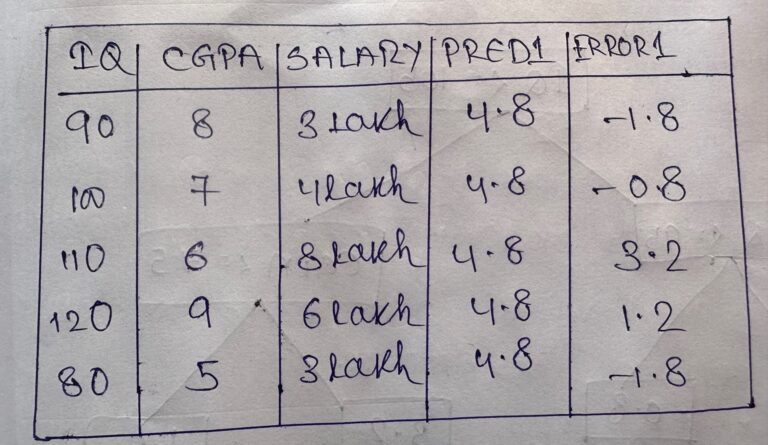 IQ CGPA SALARY PRED1 ERROR1
90 8 3 Lakh 4.8 -1.8
100 7 4 Lakh 4.8 -0.8
110 6 8 Lakh 4.8 3.2
120 9 6 Lakh 4.8 1.2
80 5 3 Lakh 4.8 -1.8